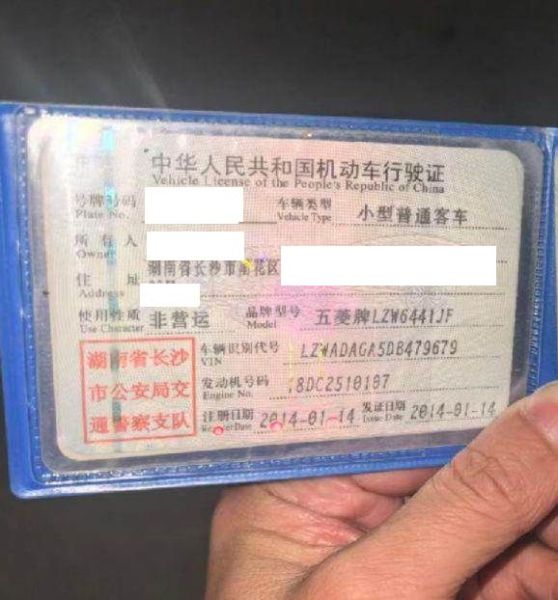 中华人民共和国机动车行驶证
Vehicle License of the People's Republic of China
号牌号码 车辆类型 小型普通客车
Plate No. Vehicle Type
所有人
Owner
住址 湖南省长沙市雨花区
Address
使用性质 非营运 品牌型号 五菱牌LZW6441JF
Use Character Model
湖南省长沙市公安局交通警察支队
车辆识别代号 LZWADAGA5DB479679
VIN
发动机号码 8DC2510107
Engine No.
注册日期 2014-01-14 发证日期 2014-01-14
Register Date Issue Date